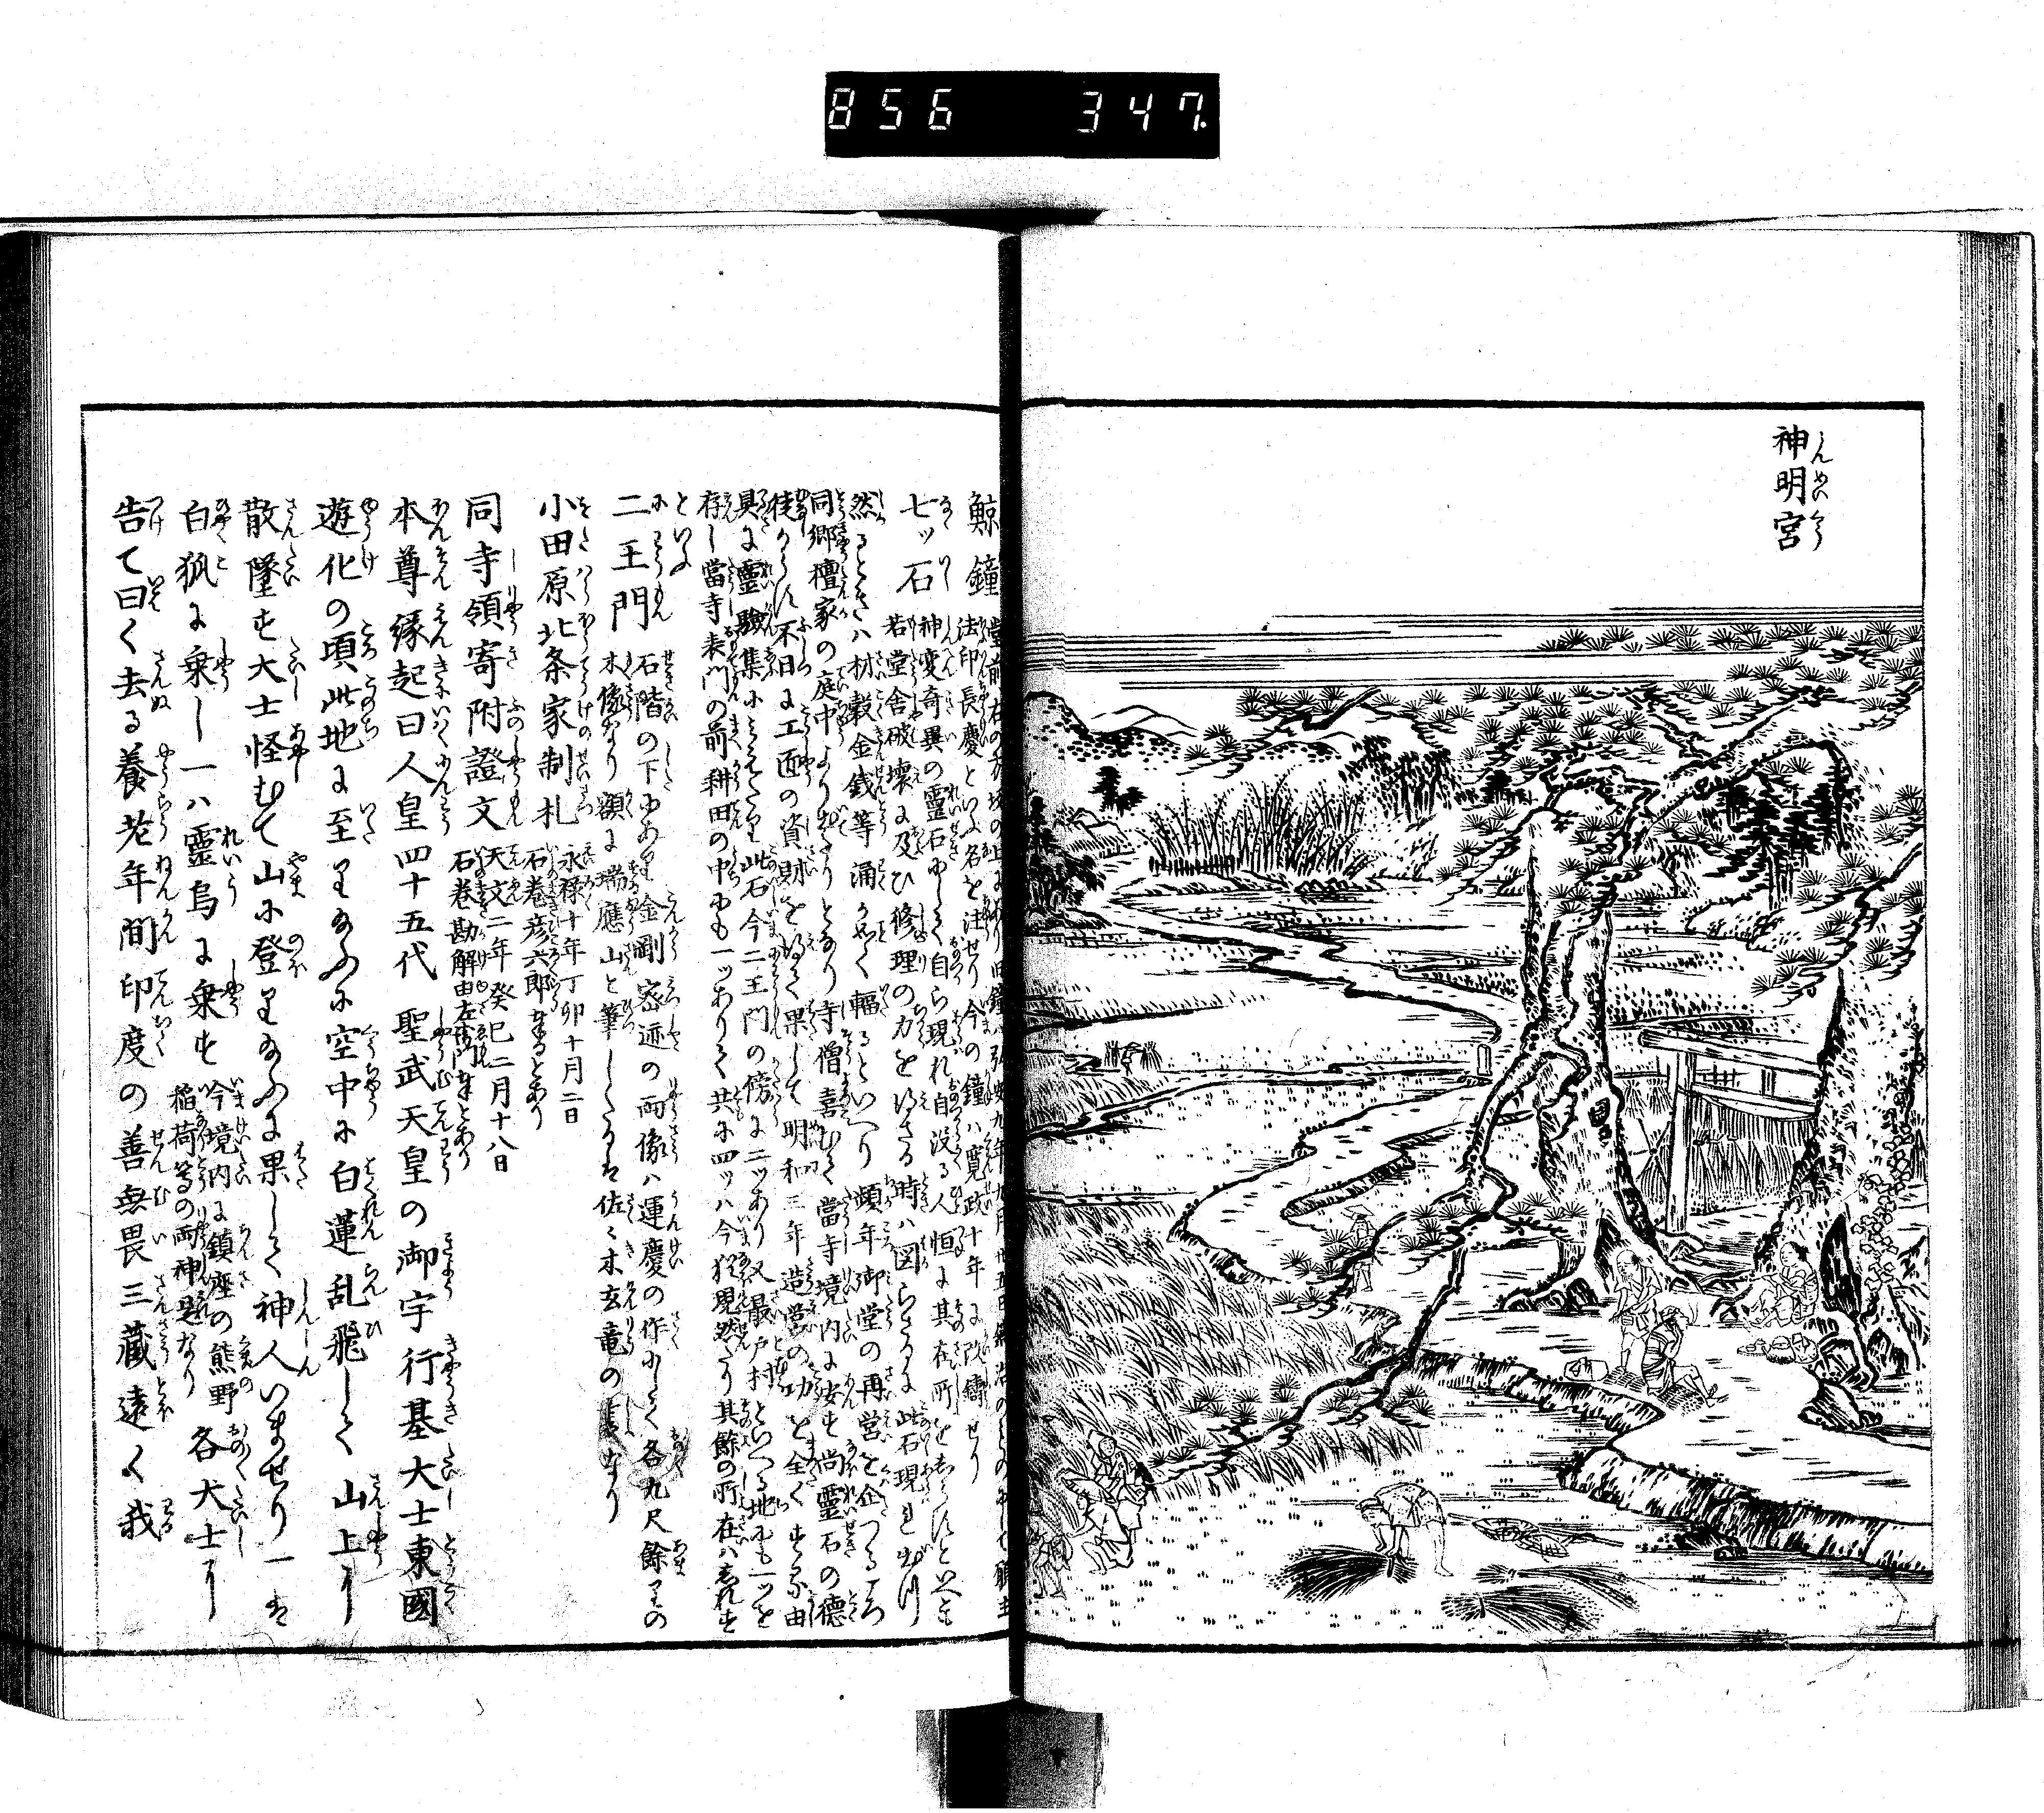 856 347
神明宮
鯨鐘
法印長慶といふ名を注せり今の鐘ハ寛政十年に改鑄せり
七ッ石
神変奇異の霊石にして自ら現れ自没る人恒に其在所を
若堂舎破壊に及ひ修理の力を得さる時ハ図らさるに此石現れ出
然るときハ材穀金銭等涌かことく輻るといへり頻年御堂の再営を企つるころ
同郷檀家の庭中より出たりとなり寺僧喜むて當寺境内に安す尚霊石の徳
不日に工匠の資財を得て果して明和三年造営の功を全くせる由
具に霊驗集に見えたり此石今二王門の傍に二ッあり又最戸村といへる地にも一ッを
存し當寺表門の前耕田の中にも一ッありて共に四ッハ今猶現然たり其餘の所在ハしれす
といふ
二王門
石階の下にあり金剛密迹の両像ハ運慶の作にして各九尺餘りの
木像なり額に瑞應山と筆したるは佐々木玄竜の書なり
小田原北条家制札
永禄十年丁卯十月二日
石巻彦六郎奉るとあり
同寺領寄附證文
天文二年癸巳二月十八日
石巻勘解由左衛門奉とあり
本尊縁起曰人皇四十五代聖武天皇の御宇行基大士東國
遊化の頃此地に至り給ふに空中に白蓮乱飛して山上に
散墜す大士怪むて山に登り給ふに果して神人いませり一は
白狐に乗し一ハ霊烏に乗す
今境内に鎮座の熊野
稲荷等の両神是なり
各大士に
告て曰く去る養老年間印度の善無畏三藏遠く我